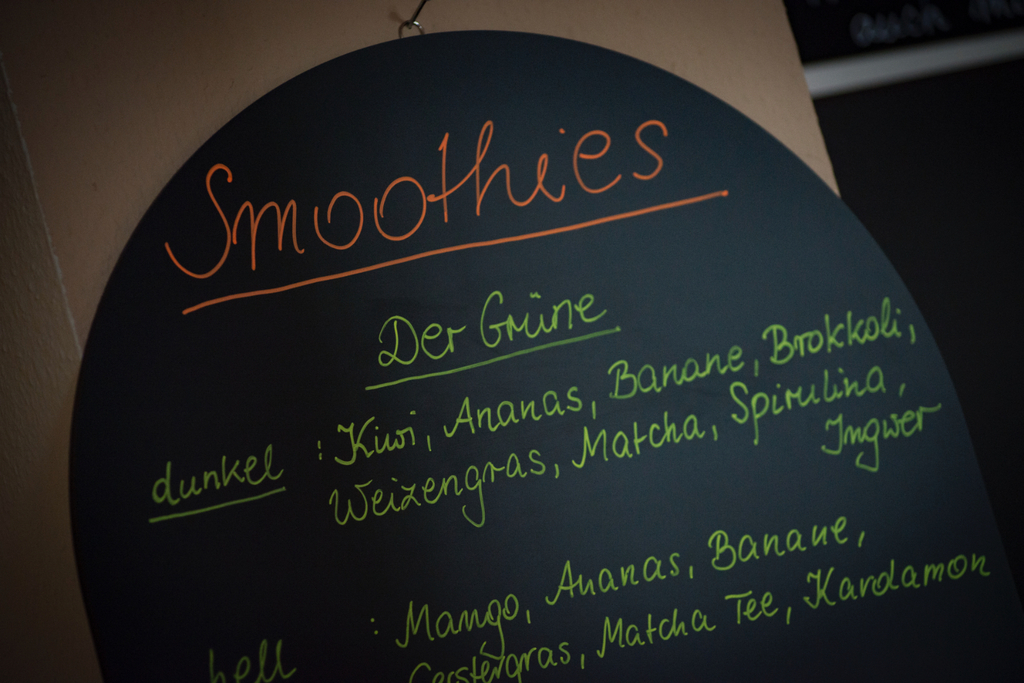 auch
Smoothies
Der Grüne
dunkel : Kiwi, Ananas, Banane, Brokkoli,
Weizengras, Matcha, Spirulina,
Ingwer
hell : Mango, Ananas, Banane,
Gerstengras, Matcha Tee, Kardamon